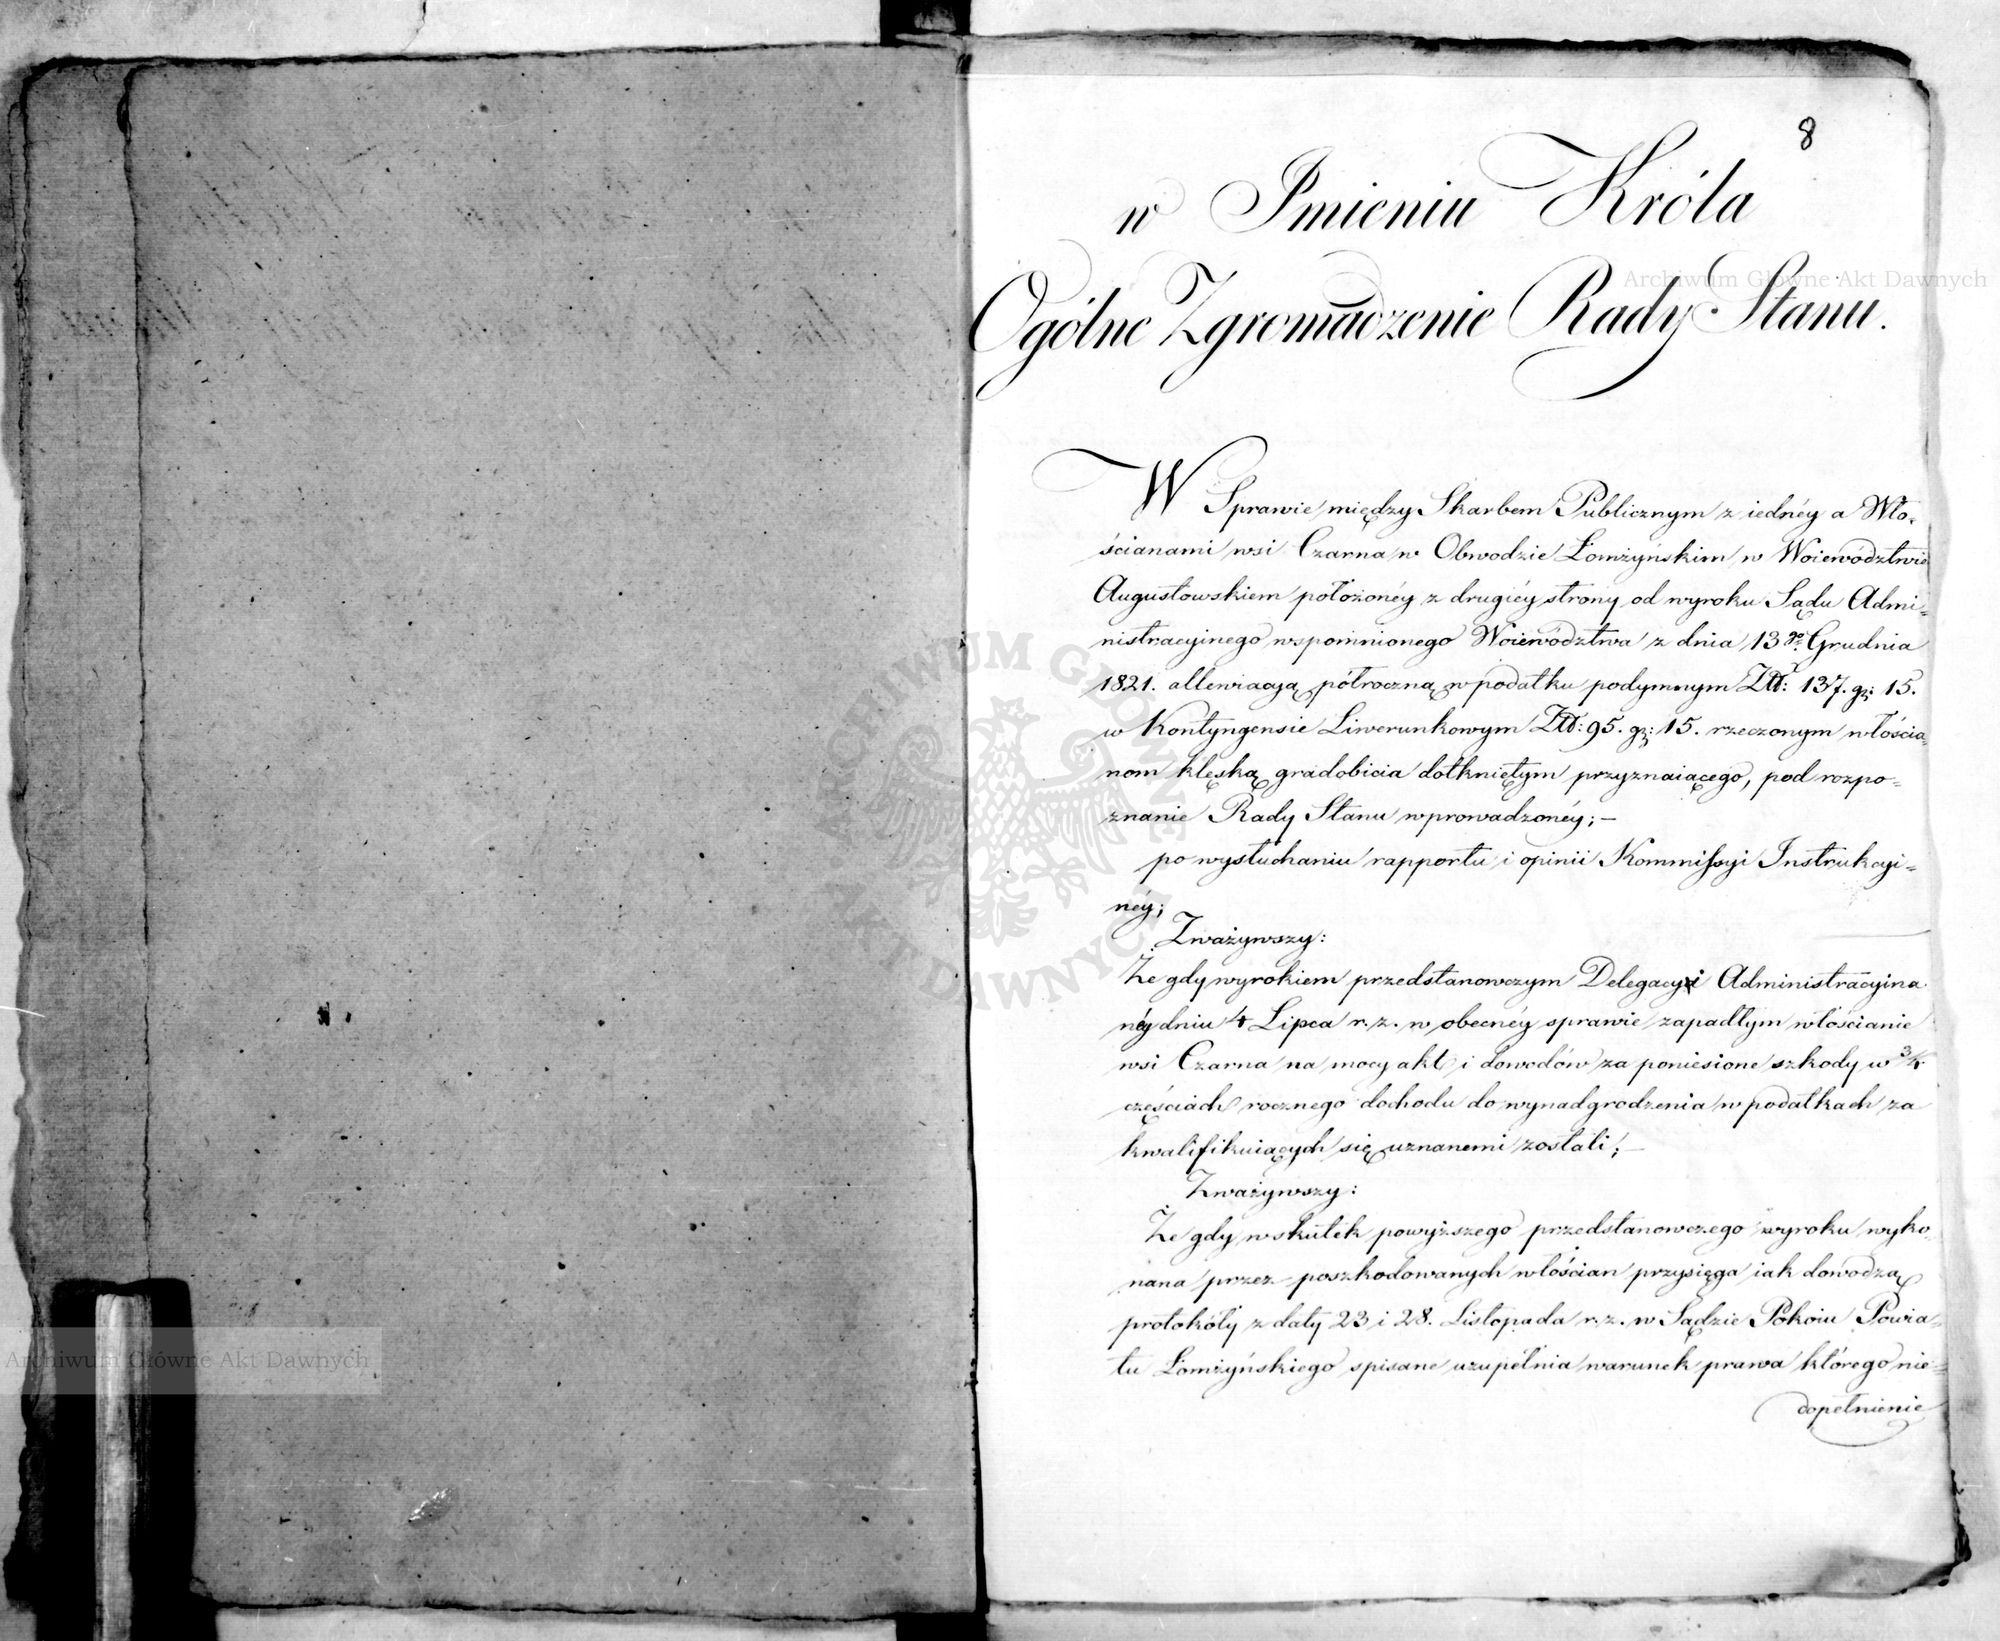 8
w Imieniu Króla
Ogólne Zgromadzenie Rady Stanu.
W Sprawie między Skarbem Publicznym z iednéy a Wło-
ścianami wsi Czarna w Obwodzie Łomżyńskim w Woiewództwie
Augustowskiem położonéy z drugiéy strony od wyroku Sądu Admi-
nistracyinego wspomnionego Woiewództwa z dnia 13go Grudnia
1821. allewiacyą półroczną w podatku podymnym Złt: 137. gr: 15.
w Kontyngensie Liwerunkowym Złt: 95. gr: 15. rzeczonym włościa-
nom klęską gradobicia dotkniętym przyznaiącego, pod rozpo-
znanie Rady Stanu wprowadzonéy; —
po wysłuchaniu rapportu i opinii Kommissyi Instrukcyi-
néy;
Zważywszy:
Że gdy wyrokiem przedstanowczym Delegacyi Administracyina
néy dniu 4 Lipca r. z. w obecnéy sprawie zapadłym włościanie
wsi Czarna na mocy akt i dowodów za poniesione szkody w 3/4
częściach rocznego dochodu do wynadgrodzenia w podatkach za
kwalifikuiących się uznanemi zostali; —
Zważywszy:
Że gdy wskutek powyższego przedstanowczego wyroku wyko
nana przez poszkodowanych włościan przysięga iak dowodzą
protokóły z daty 23 i 28. Listopada r. z. w Sądzie Pokoiu Powia-
tu Łomżyńskiego spisane uzupełnia warunek prawa którego nie-
dopełnienie
Archiwum Główne Akt Dawnych
ARCHIWUM GŁÓWNE
AKT DAWNYCH
Archiwum Główne Akt Dawnych